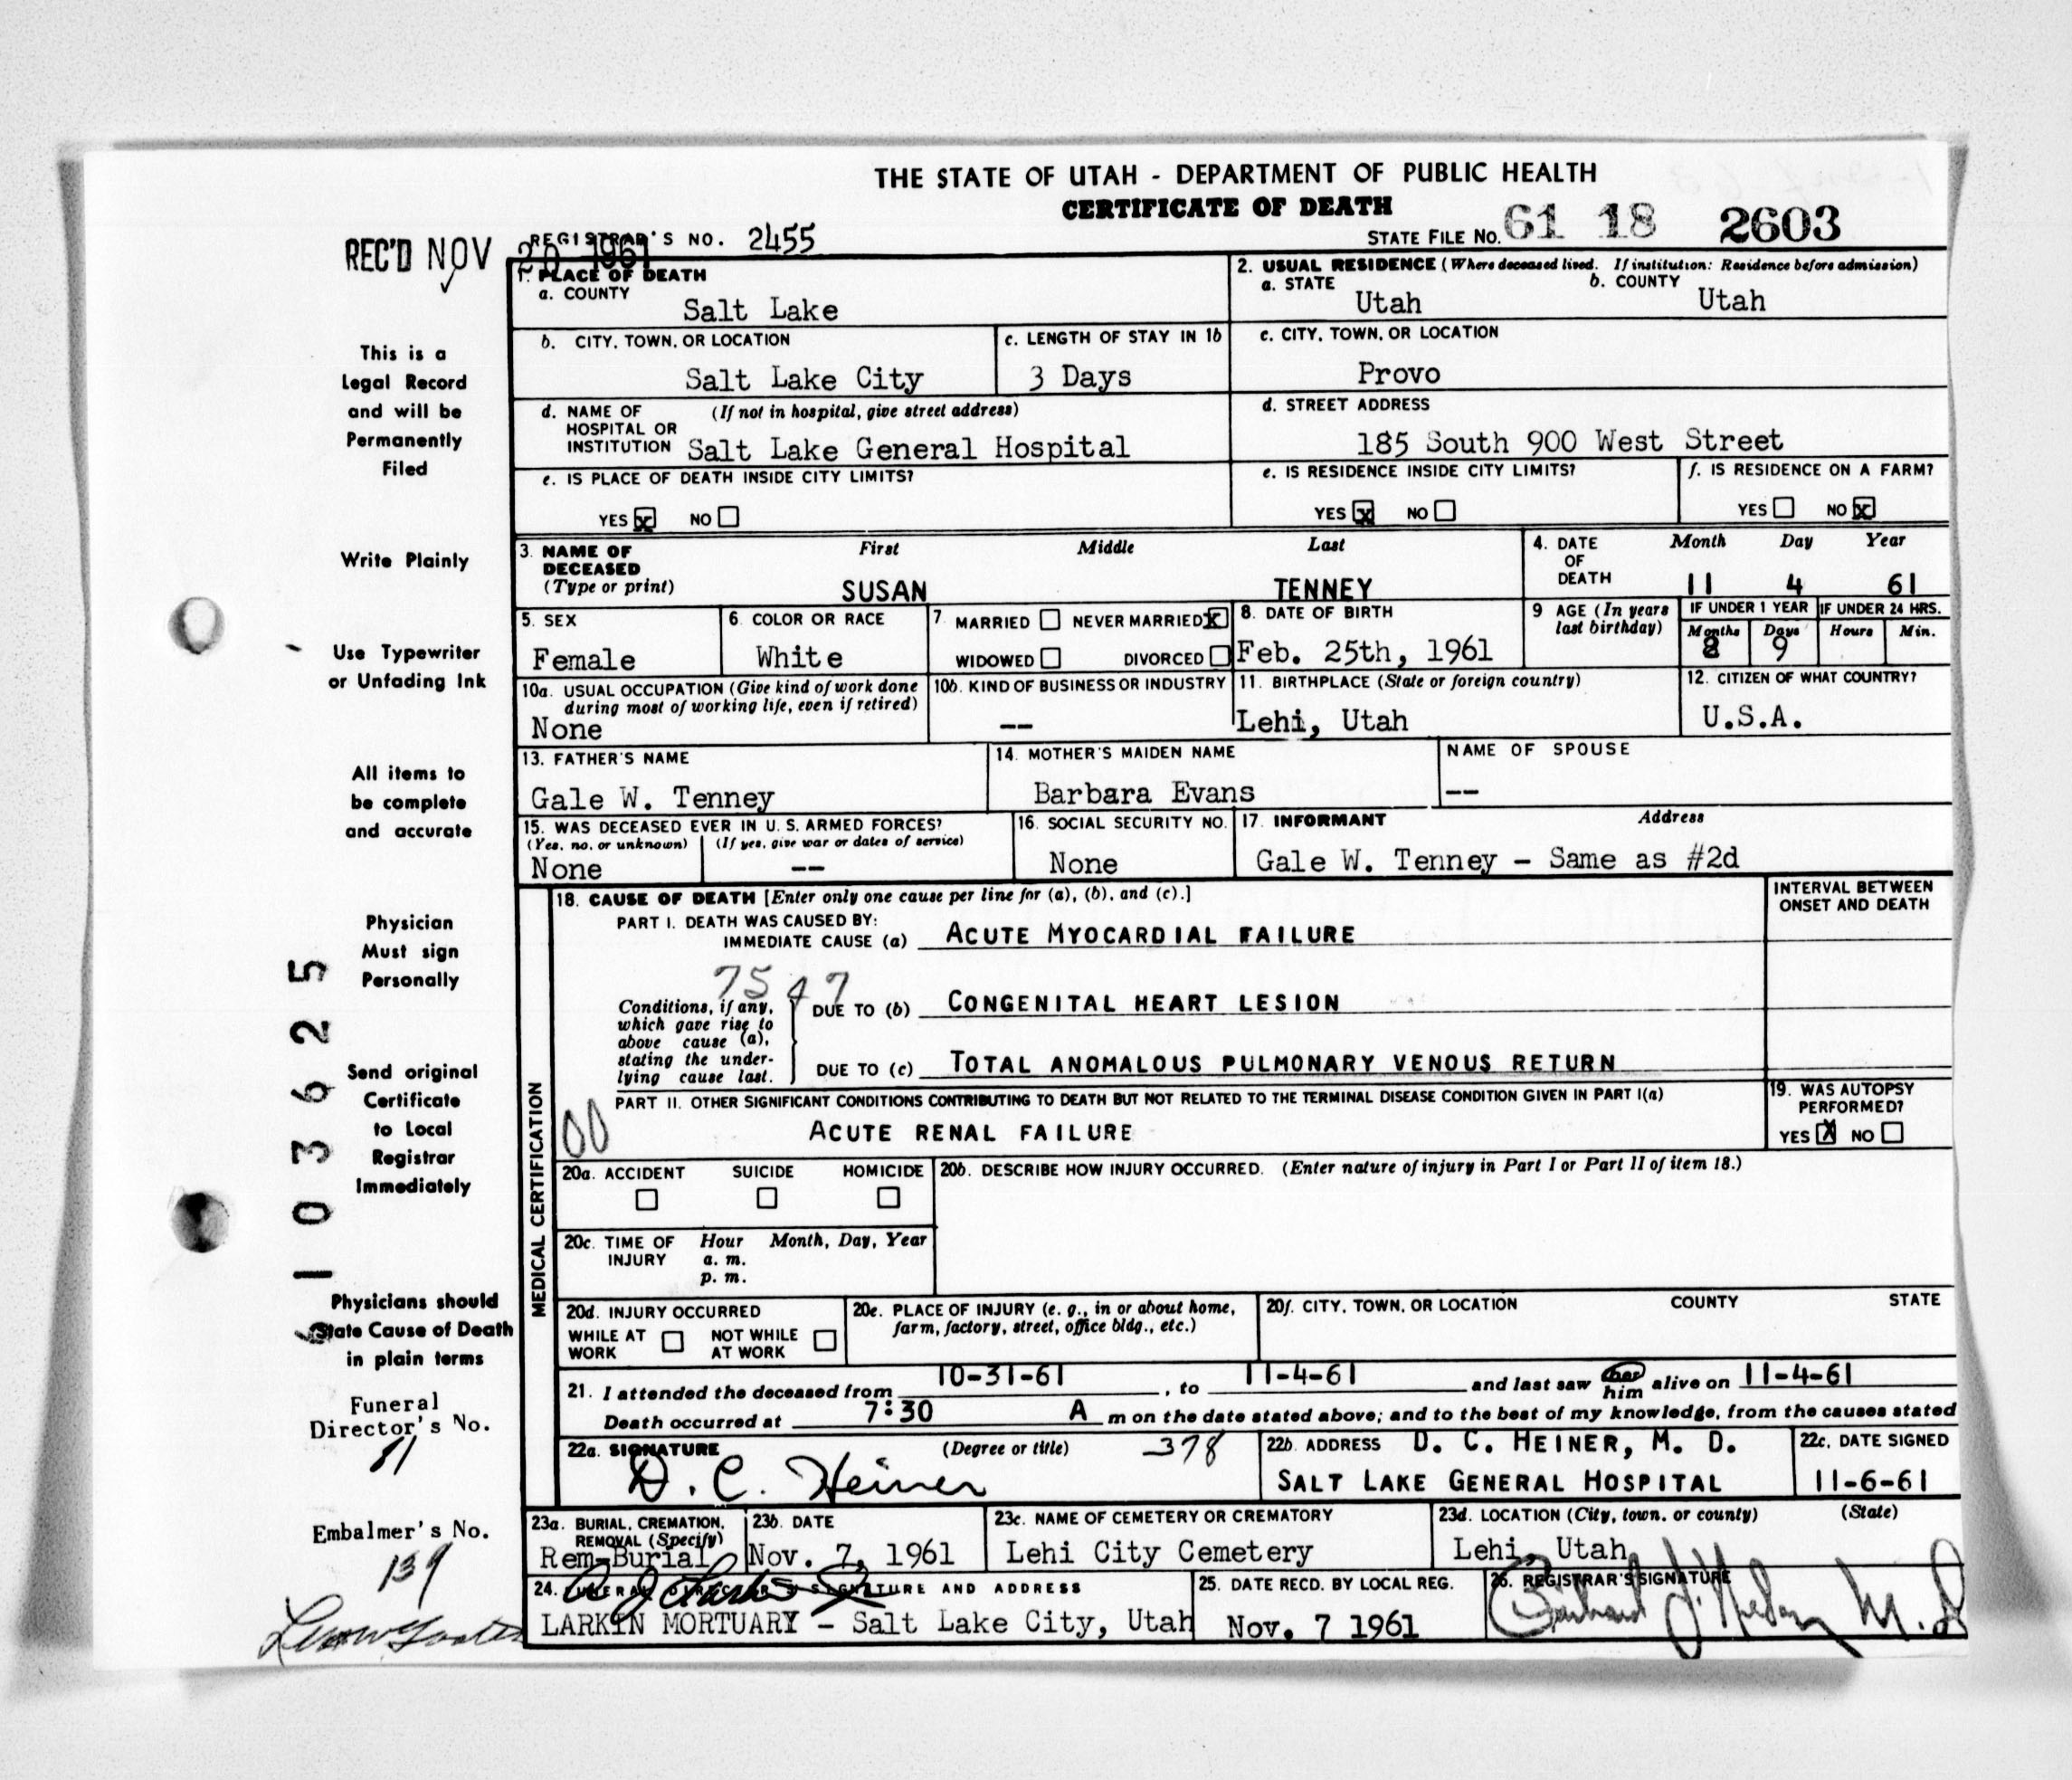 THE STATE OF UTAH - DEPARTMENT OF PUBLIC HEALTH
CERTIFICATE OF DEATH
REC'D NOV 20 1961
REGISTRAR'S NO. 2455
STATE FILE No. 61 18 2603
1. PLACE OF DEATH
a. COUNTY
Salt Lake
2. USUAL RESIDENCE (Where deceased lived. If institution: Residence before admission)
a. STATE
Utah
b. COUNTY
Utah
b. CITY, TOWN, OR LOCATION
Salt Lake City
c. LENGTH OF STAY IN 1b
3 Days
c. CITY, TOWN, OR LOCATION
Provo
d. NAME OF HOSPITAL OR INSTITUTION
(If not in hospital, give street address)
Salt Lake General Hospital
d. STREET ADDRESS
185 South 900 West Street
e. IS PLACE OF DEATH INSIDE CITY LIMITS?
YES x NO
e. IS RESIDENCE INSIDE CITY LIMITS?
YES x NO
f. IS RESIDENCE ON A FARM?
YES NO x
3. NAME OF DECEASED
(Type or print)
First Middle Last
SUSAN TENNEY
4. DATE OF DEATH
Month Day Year
11 4 61
5. SEX
Female
6. COLOR OR RACE
White
7. MARRIED NEVER MARRIED x
WIDOWED DIVORCED
8. DATE OF BIRTH
Feb. 25th, 1961
9 AGE (In years last birthday)
IF UNDER 1 YEAR
Months Days
8 9
IF UNDER 24 HRS.
Hours Min.
10a. USUAL OCCUPATION (Give kind of work done during most of working life, even if retired)
None
10b. KIND OF BUSINESS OR INDUSTRY
--
11. BIRTHPLACE (State or foreign country)
Lehi, Utah
12. CITIZEN OF WHAT COUNTRY?
U.S.A.
13. FATHER'S NAME
Gale W. Tenney
14. MOTHER'S MAIDEN NAME
Barbara Evans
NAME OF SPOUSE
--
15. WAS DECEASED EVER IN U. S. ARMED FORCES?
(Yes, no, or unknown) (If yes, give war or dates of service)
None --
16. SOCIAL SECURITY NO.
None
17. INFORMANT Address
Gale W. Tenney - Same as #2d
MEDICAL CERTIFICATION
18. CAUSE OF DEATH [Enter only one cause per line for (a), (b), and (c).]
INTERVAL BETWEEN ONSET AND DEATH
PART I. DEATH WAS CAUSED BY:
IMMEDIATE CAUSE (a) ACUTE MYOCARDIAL FAILURE
7547
Conditions, if any, which gave rise to above cause (a), stating the underlying cause last.
DUE TO (b) CONGENITAL HEART LESION
DUE TO (c) TOTAL ANOMALOUS PULMONARY VENOUS RETURN
PART II. OTHER SIGNIFICANT CONDITIONS CONTRIBUTING TO DEATH BUT NOT RELATED TO THE TERMINAL DISEASE CONDITION GIVEN IN PART I(a)
00
ACUTE RENAL FAILURE
19. WAS AUTOPSY PERFORMED?
YES X NO
20a. ACCIDENT SUICIDE HOMICIDE
20b. DESCRIBE HOW INJURY OCCURRED. (Enter nature of injury in Part I or Part II of item 18.)
20c. TIME OF INJURY
Hour Month, Day, Year
a. m.
p. m.
20d. INJURY OCCURRED
WHILE AT WORK NOT WHILE AT WORK
20e. PLACE OF INJURY (e. g., in or about home, farm, factory, street, office bldg., etc.)
20f. CITY, TOWN, OR LOCATION COUNTY STATE
21. I attended the deceased from 10-31-61, to 11-4-61 and last saw her him alive on 11-4-61
Death occurred at 7:30 A m on the date stated above; and to the best of my knowledge, from the causes stated
22a. SIGNATURE (Degree or title) 378
D. C. Heiner
22b. ADDRESS D. C. HEINER, M. D.
SALT LAKE GENERAL HOSPITAL
22c. DATE SIGNED
11-6-61
23a. BURIAL, CREMATION, REMOVAL (Specify)
Rem-Burial
23b. DATE
Nov. 7, 1961
23c. NAME OF CEMETERY OR CREMATORY
Lehi City Cemetery
23d. LOCATION (City, town, or county) (State)
Lehi, Utah
24. FUNERAL DIRECTOR'S SIGNATURE AND ADDRESS
LARKIN MORTUARY - Salt Lake City, Utah
25. DATE RECD. BY LOCAL REG.
Nov. 7 1961
26. REGISTRAR'S SIGNATURE
M.D.
This is a
Legal Record
and will be
Permanently
Filed
Write Plainly
Use Typewriter
or Unfading Ink
All items to
be complete
and accurate
Physician
Must sign
Personally
Send original
Certificate
to Local
Registrar
Immediately
Physicians should
State Cause of Death
in plain terms
Funeral
Director's No.
81
Embalmer's No.
139
6103625